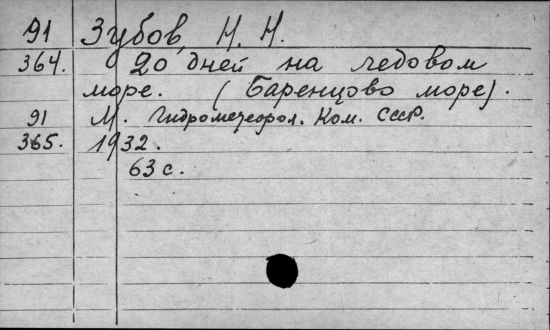 91 Зубов, Н. Н.
364. 20 дней на ледовом
море. (Баренцово море).
91 М. Гидрометеорол. Ком. СССР.
365. 1932.
63 с.